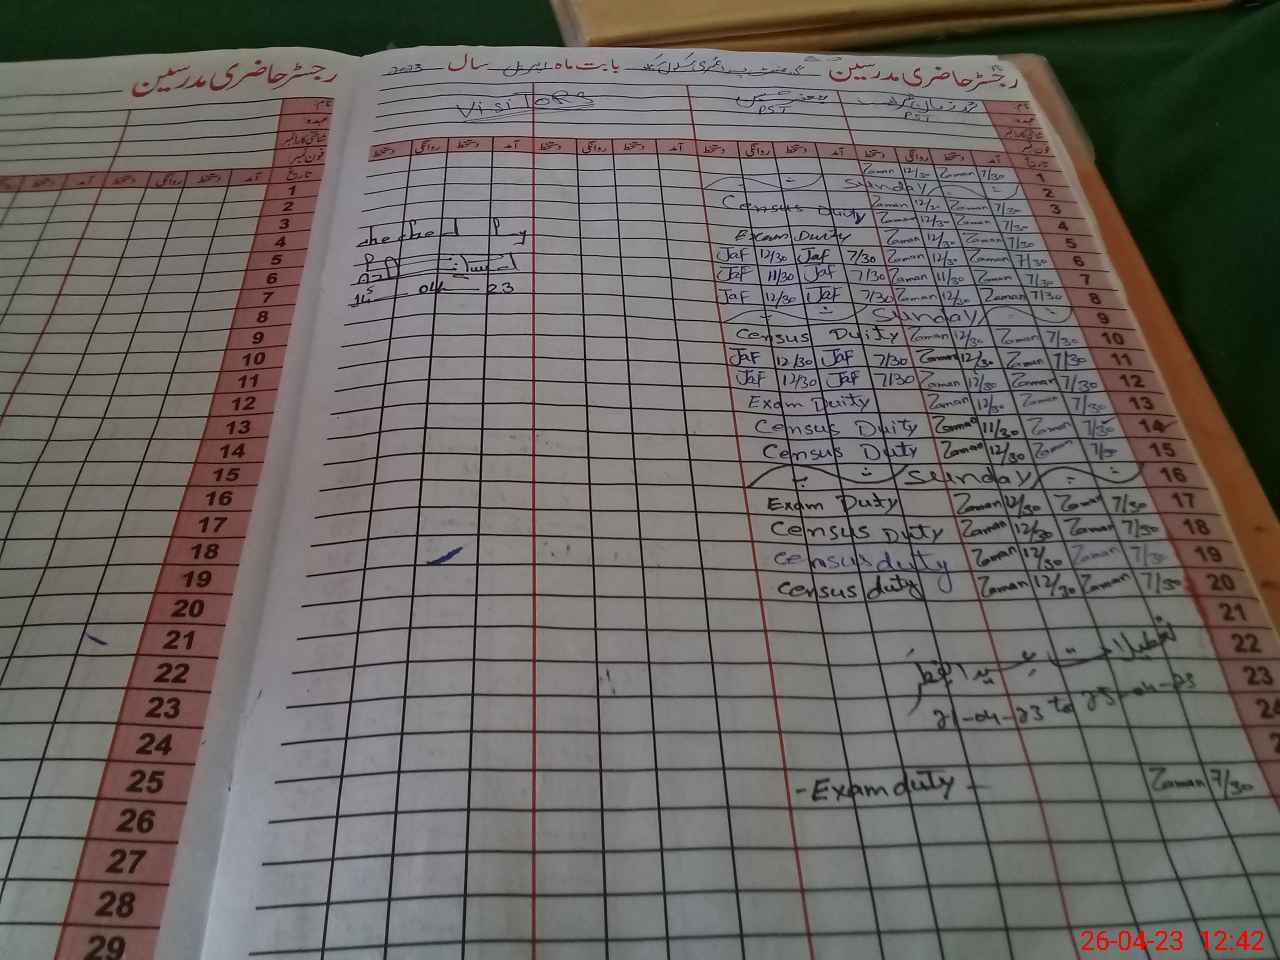 رجسٹر حاضری مدرسین
رجسٹر حاضری مدرسین بابت ماہ اپریل سال 2023
نام
عہدہ
شناختی کارڈ نمبر
فون نمبر
تاریخ
VISITORS
PST
PST
تاریخ آمد دستخط روانگی دستخط آمد دستخط روانگی دستخط آمد دستخط روانگی دستخط آمد دستخط روانگی دستخط
1 7/30 Zaman 12/30 Zaman
2 Sunday
3 7/30 Zaman 12/30 Zaman Census Duty
4 7/30 Zaman 12/30 Zaman
5 7/30 Zaman 12/30 Zaman Exam Duty
6 7/30 Zaman 12/30 Zaman 7/30 Jaf 12/30 Jaf
7 7/30 Zaman 11/30 Zaman 7/30 Jaf 11/30 Jaf
8 7/30 Zaman 12/30 Zaman 7/30 Jaf 12/30 Jaf
9 Sunday
10 7/30 Zaman 12/30 Zaman Census Duity
11 7/30 Zaman 12/30 Zaman 7/30 Jaf 12/30 Jaf
12 7/30 Zaman 12/30 Zaman 7/30 Jaf 12/30 Jaf
13 7/30 Zaman 12/30 Zaman Exam Duity
14 7/30 Zaman 11/30 Zaman Census Duity
15 7/30 Zaman 12/30 Zaman Census Duty
16 Sunday
17 7/30 Zaman 12/30 Zaman Exam Duty
18 7/30 Zaman 12/30 Zaman Census Duty
19 7/30 Zaman 12/30 Zaman Census duty
20 7/30 Zaman 12/30 Zaman Census duty
21
22
تعطیلات عید الفطر
23
21-04-23 to 25-04-23
24
Zaman 7/30
-Exam duty-
checked by
04 23
آمد دستخط روانگی دستخط آمد دستخط
تاریخ
1
2
3
4
5
6
7
8
9
10
11
12
13
14
15
16
17
18
19
20
21
22
23
24
25
26
27
28
29
26-04-23 12:42